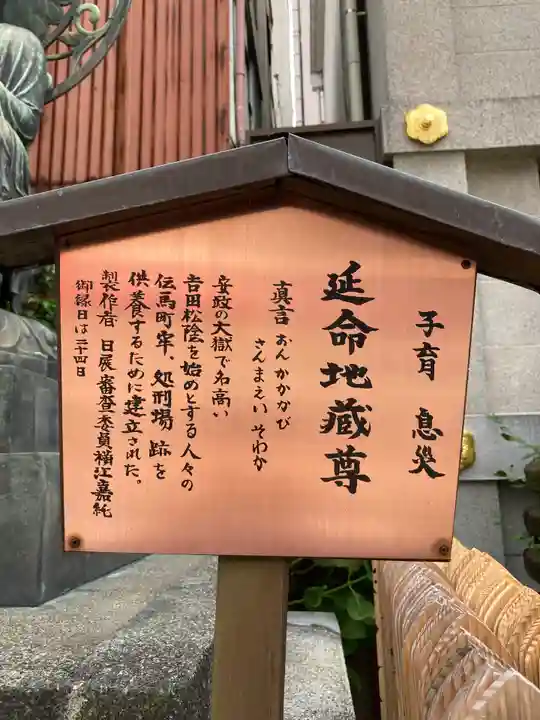 子育 息災
延命地蔵尊
真言 おん かかなび
さんまえい そわか
安政の大獄で名高い
吉田松陰を始めとする人々の
伝馬町牢、処刑場 跡を
供養するために建立された。
製作者 日展審査委員 江嘉純
御縁日は二十四日